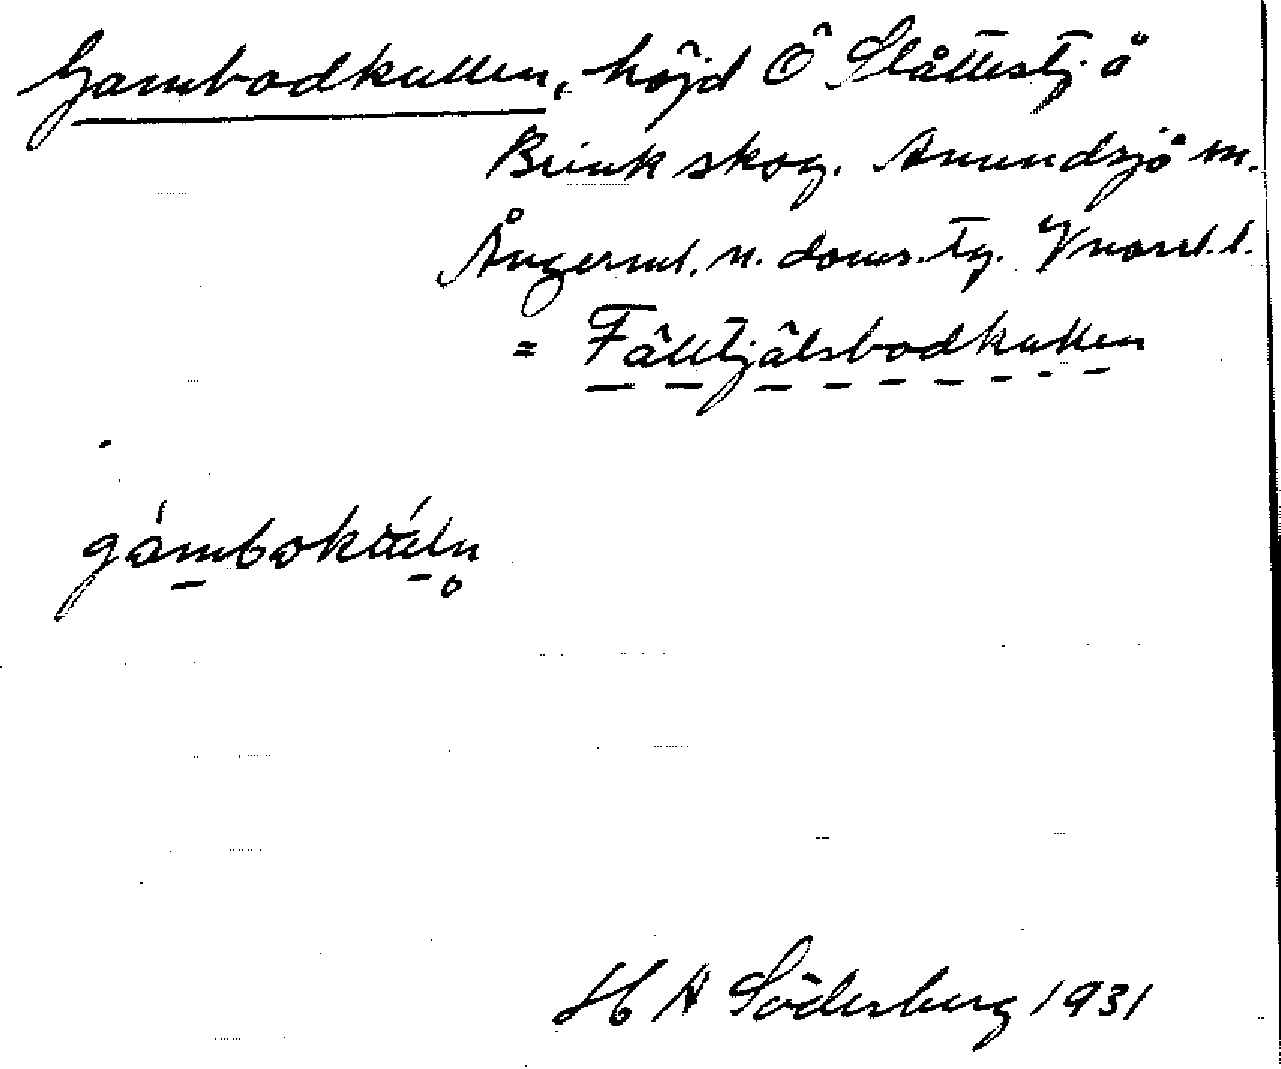 Gambodkullen, höjd Ö Slåttestj. å
Brink skog. Anundsjö sn.
Ångerml. n. doms. tg. Vnorrl. l.
= Fälltjälsbodkullen
H A Söderberg 1931